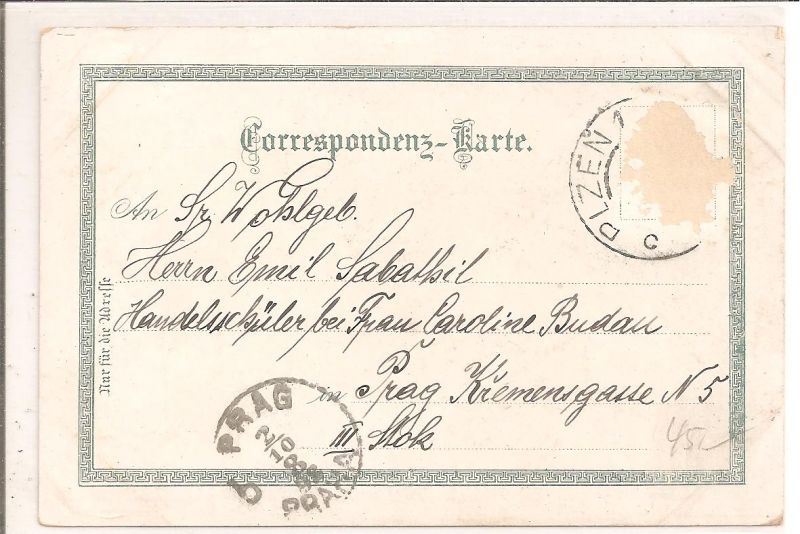 Correspondenz-Karte.
PLZEN 1
C
An Sr. Wohlgeb.
Herrn Emil Sabathil
Handelsschüler bei Frau Caroline Budau
in Prag Kremensgasse N 5
III Stok
Nur für die Adresse
PRAG
PRAHA
451